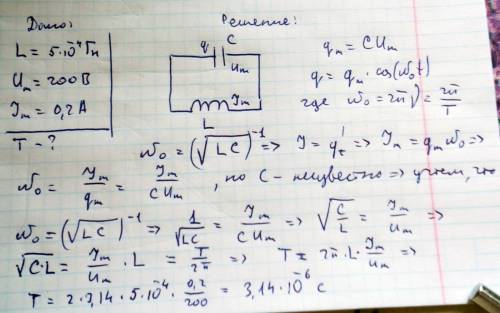 Дано:
L = 5·10⁻⁴ Гн
Uₘ = 200 В
Iₘ = 0,2 А
T - ?
Решение:
q C
Uₘ
Iₘ
L
qₘ = C Uₘ
q = qₘ · cos(ω₀t)
где ω₀ = 2πν = 2π/T
ω₀ = (√LC)⁻¹ => I = q'ₜ => Iₘ = qₘ ω₀ =>
ω₀ = Iₘ/qₘ = Iₘ/CUₘ , но C - неизвестно => учтем, что
ω₀ = (√LC)⁻¹ => 1/√LC = Iₘ/CUₘ => √C/L = Iₘ/Uₘ =>
√C·L = Iₘ/Uₘ · L = T/2π => T = 2π·L·Iₘ/Uₘ =>
T = 2·3,14·5·10⁻⁴ · 0,2/200 = 3,14·10⁻⁶ с